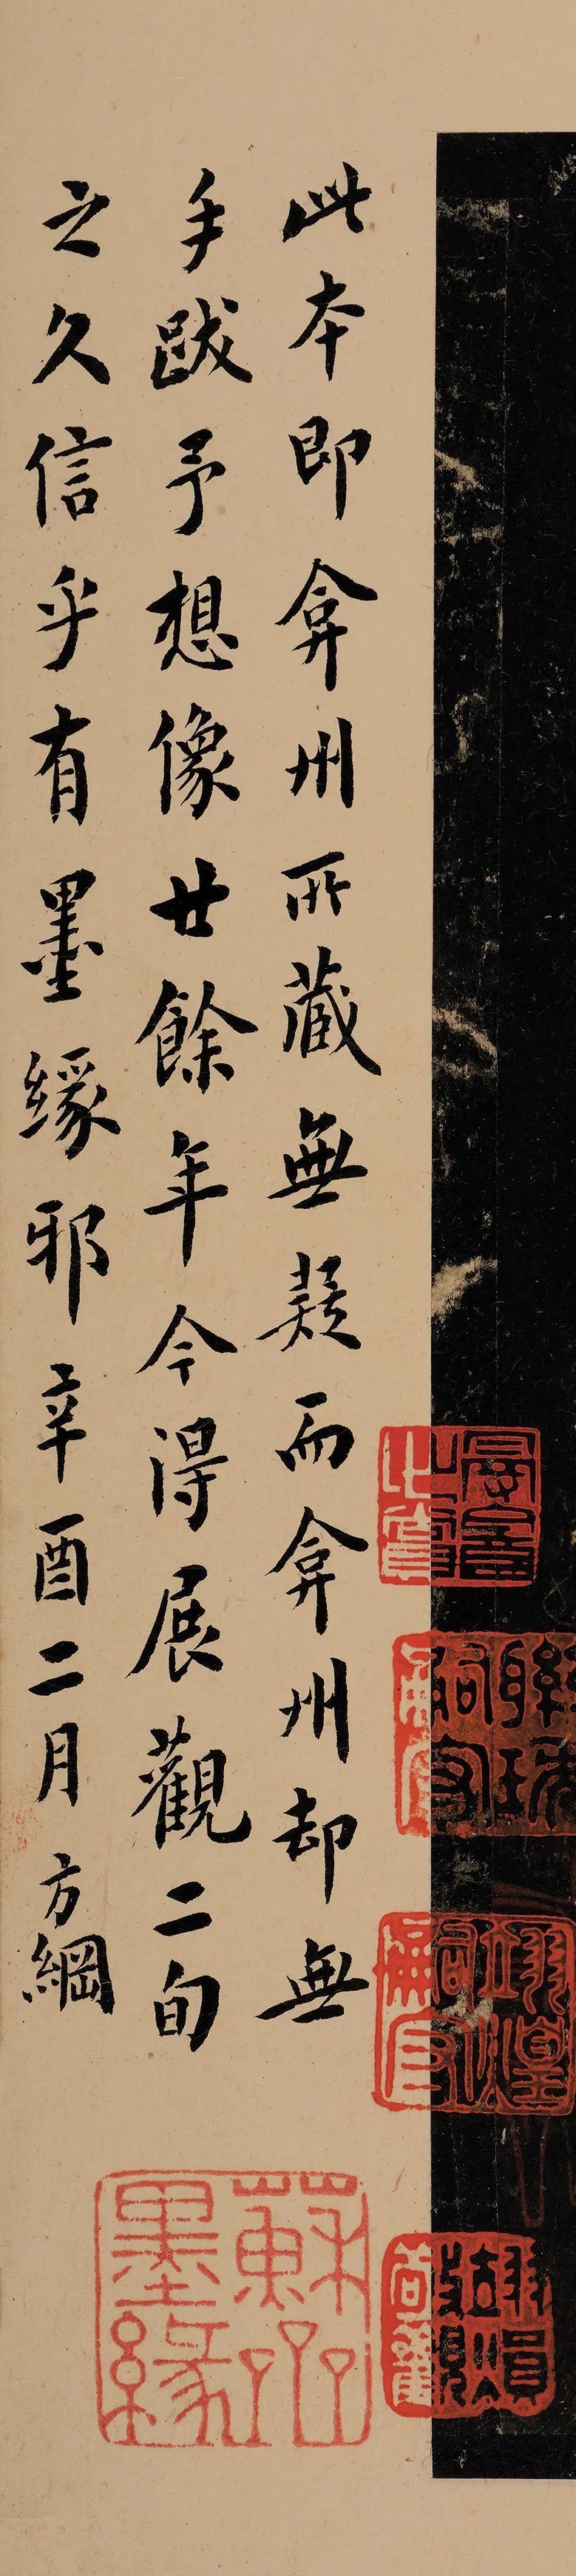 此本即弇州所藏無疑而弇州却無
手跋予想像廿餘年今得展觀二旬
之久信乎有墨緣邪辛酉二月方綱
蘇齋墨緣